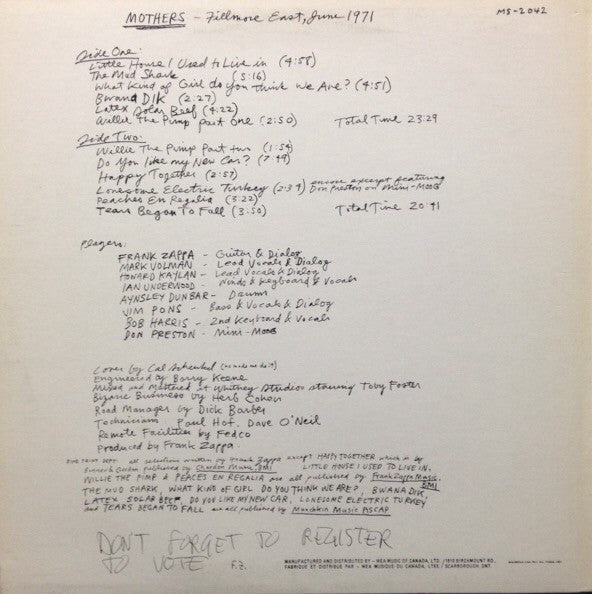 MOTHERS - Fillmore East, June 1971
MS-2042
Side One:
Little House I Used to Live in (4:58)
The Mud Shark (5:16)
What Kind of Girl do you think we Are? (4:51)
Bwana Dik (2:27)
Latex Solar Beef (4:22)
Willie The Pimp part one (2:50) Total Time 23:29
Side Two:
Willie The Pimp Part two (1:54)
Do You Like my New Car? (7:49)
Happy Together (2:57)
Lonesome Electric Turkey (2:34) encore excerpt featuring Don Preston on Mini-Moog
Peaches En Regalia (3:22)
Tears Began To Fall (3:50) Total Time 20:41
Players:
FRANK ZAPPA - Guitar & Dialog
MARK VOLMAN - Lead Vocals & Dialog
HOWARD KAYLAN - Lead Vocals & Dialog
IAN UNDERWOOD - Winds & Keyboard & Vocals
AYNSLEY DUNBAR - Drums
JIM PONS - Bass & Vocals & Dialog
BOB HARRIS - 2nd Keyboard & Vocals
DON PRESTON - Mini-Moog
Cover by Cal Schenkel (he made me do it)
Engineered by Barry Keene
Mixed and Mastered at Whitney Studios starring Toby Foster
Bizarre Business by Herb Cohen
Road Manager by Dick Barber
Technicians Paul Hof, Dave O'Neil
Remote Facilities by Fedco
Produced by Frank Zappa
FINE PRINT DEPT: all selections written by Frank Zappa except HAPPY TOGETHER which is by
Bonner & Gordon published by Chardon Music, BMI LITTLE HOUSE I USED TO LIVE IN,
WILLIE THE PIMP & PEACHES EN REGALIA are all published by Frank Zappa Music, BMI
THE MUD SHARK, WHAT KIND OF GIRL DO YOU THINK WE ARE?, BWANA DIK,
LATEX SOLAR BEEF, DO YOU LIKE MY NEW CAR, LONESOME ELECTRIC TURKEY
and TEARS BEGAN TO FALL are all published by Munchkin Music ASCAP
DON'T FORGET TO REGISTER
TO VOTE F.Z.
MANUFACTURED AND DISTRIBUTED BY - WEA MUSIC OF CANADA, LTD. / 1810 BIRCHMOUNT RD.,
FABRIQUE ET DISTRIBUE PAR - WEA MUSIQUE DU CANADA, LTEE / SCARBOROUGH, ONT.